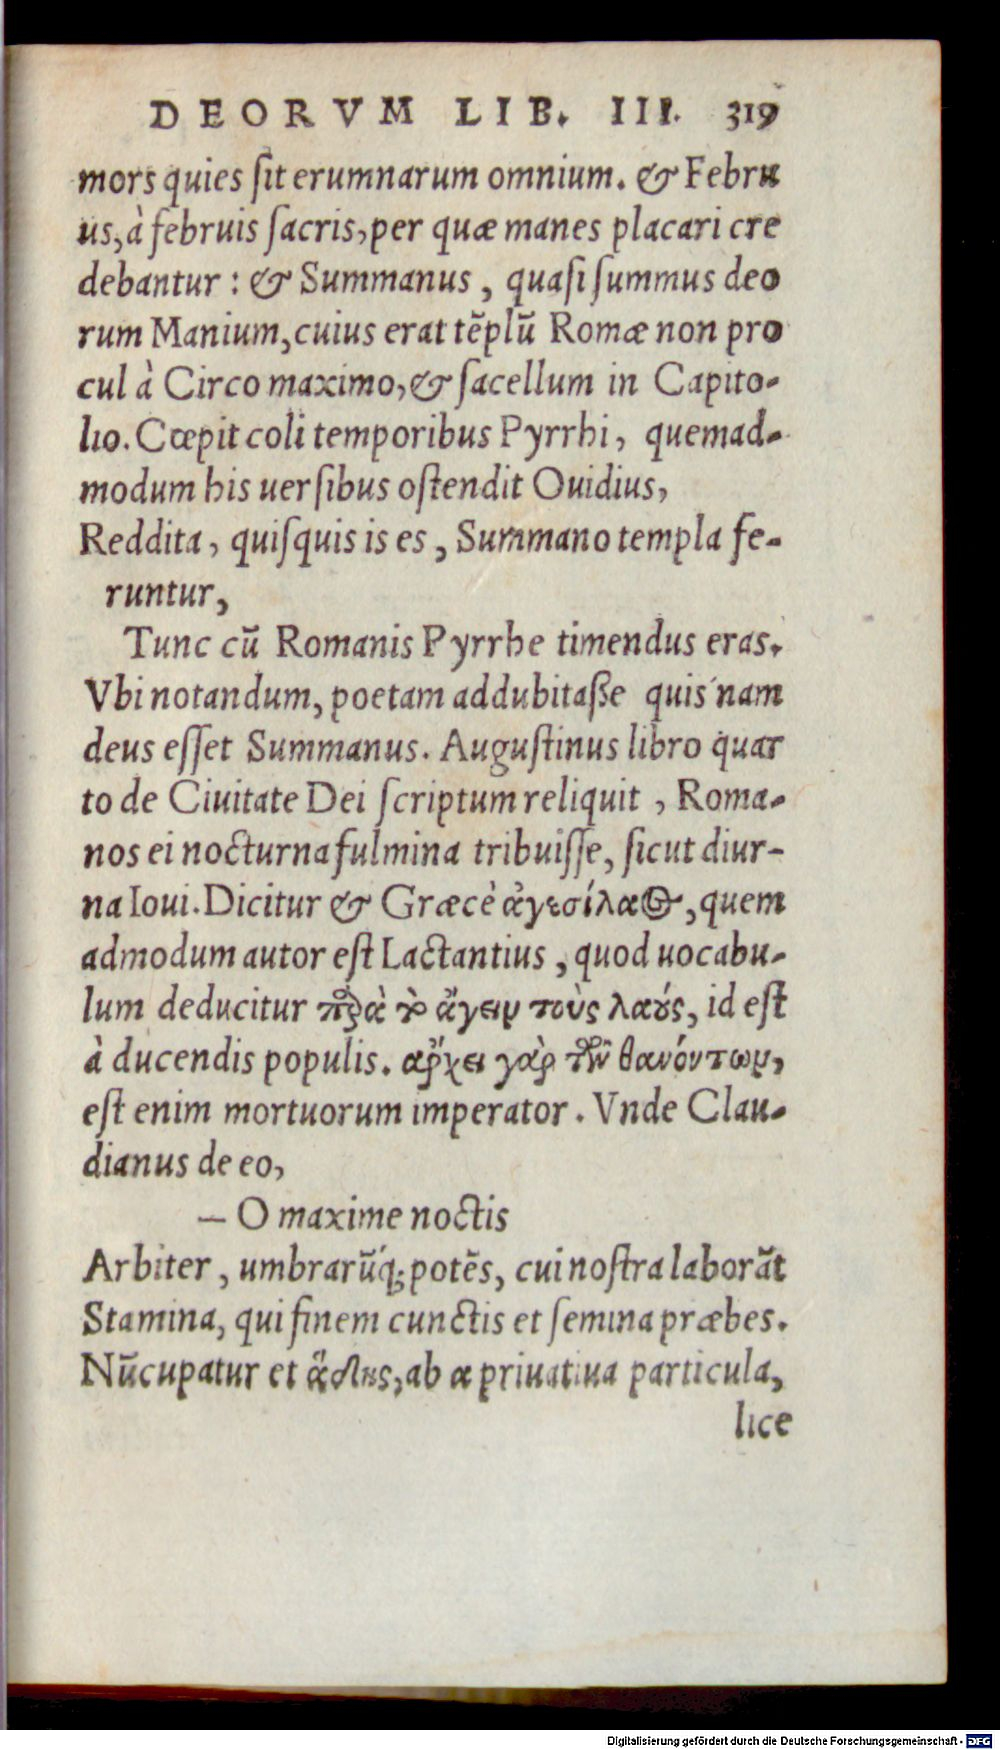 DEORVM LIB. III. 319
mors quies ſit erumnarum omnium. & Febru
us, à februis ſacris, per quæ manes placari cre
debantur: & Summanus, quaſi ſummus deo
rum Manium, cuius erat tẽplũ Romæ non pro
cul à Circo maximo, & ſacellum in Capito-
lio. Cœpit coli temporibus Pyrrhi, quemad-
modum his uerſibus oſtendit Ouidius,
Reddita, quiſquis is es, Summano templa fe-
runtur,
Tunc cũ Romanis Pyrrhe timendus eras.
Vbi notandum, poetam addubitaſſe quis'nam
deus eſſet Summanus. Auguſtinus libro quar
to de Ciuitate Dei ſcriptum reliquit, Roma-
nos ei nocturna fulmina tribuiſſe, ſicut diur-
na Ioui. Dicitur & Græcè ἀγεσίλαος, quem
admodum autor eſt Lactantius, quod uocabu-
lum deducitur παρὰ τὸ ἄγειν τοὺς λαούς, id eſt
à ducendis populis. ἄρχει γὰρ τῶν θανόντων,
eſt enim mortuorum imperator. Vnde Clau-
dianus de eo,
— O maxime noctis
Arbiter, umbrarũq́; potẽs, cui noſtra laborãt
Stamina, qui finem cunctis et ſemina præbes.
Nũcupatur et ἅδης, ab α priuatiua particula,
lice
Digitalisierung gefördert durch die Deutsche Forschungsgemeinschaft - DFG